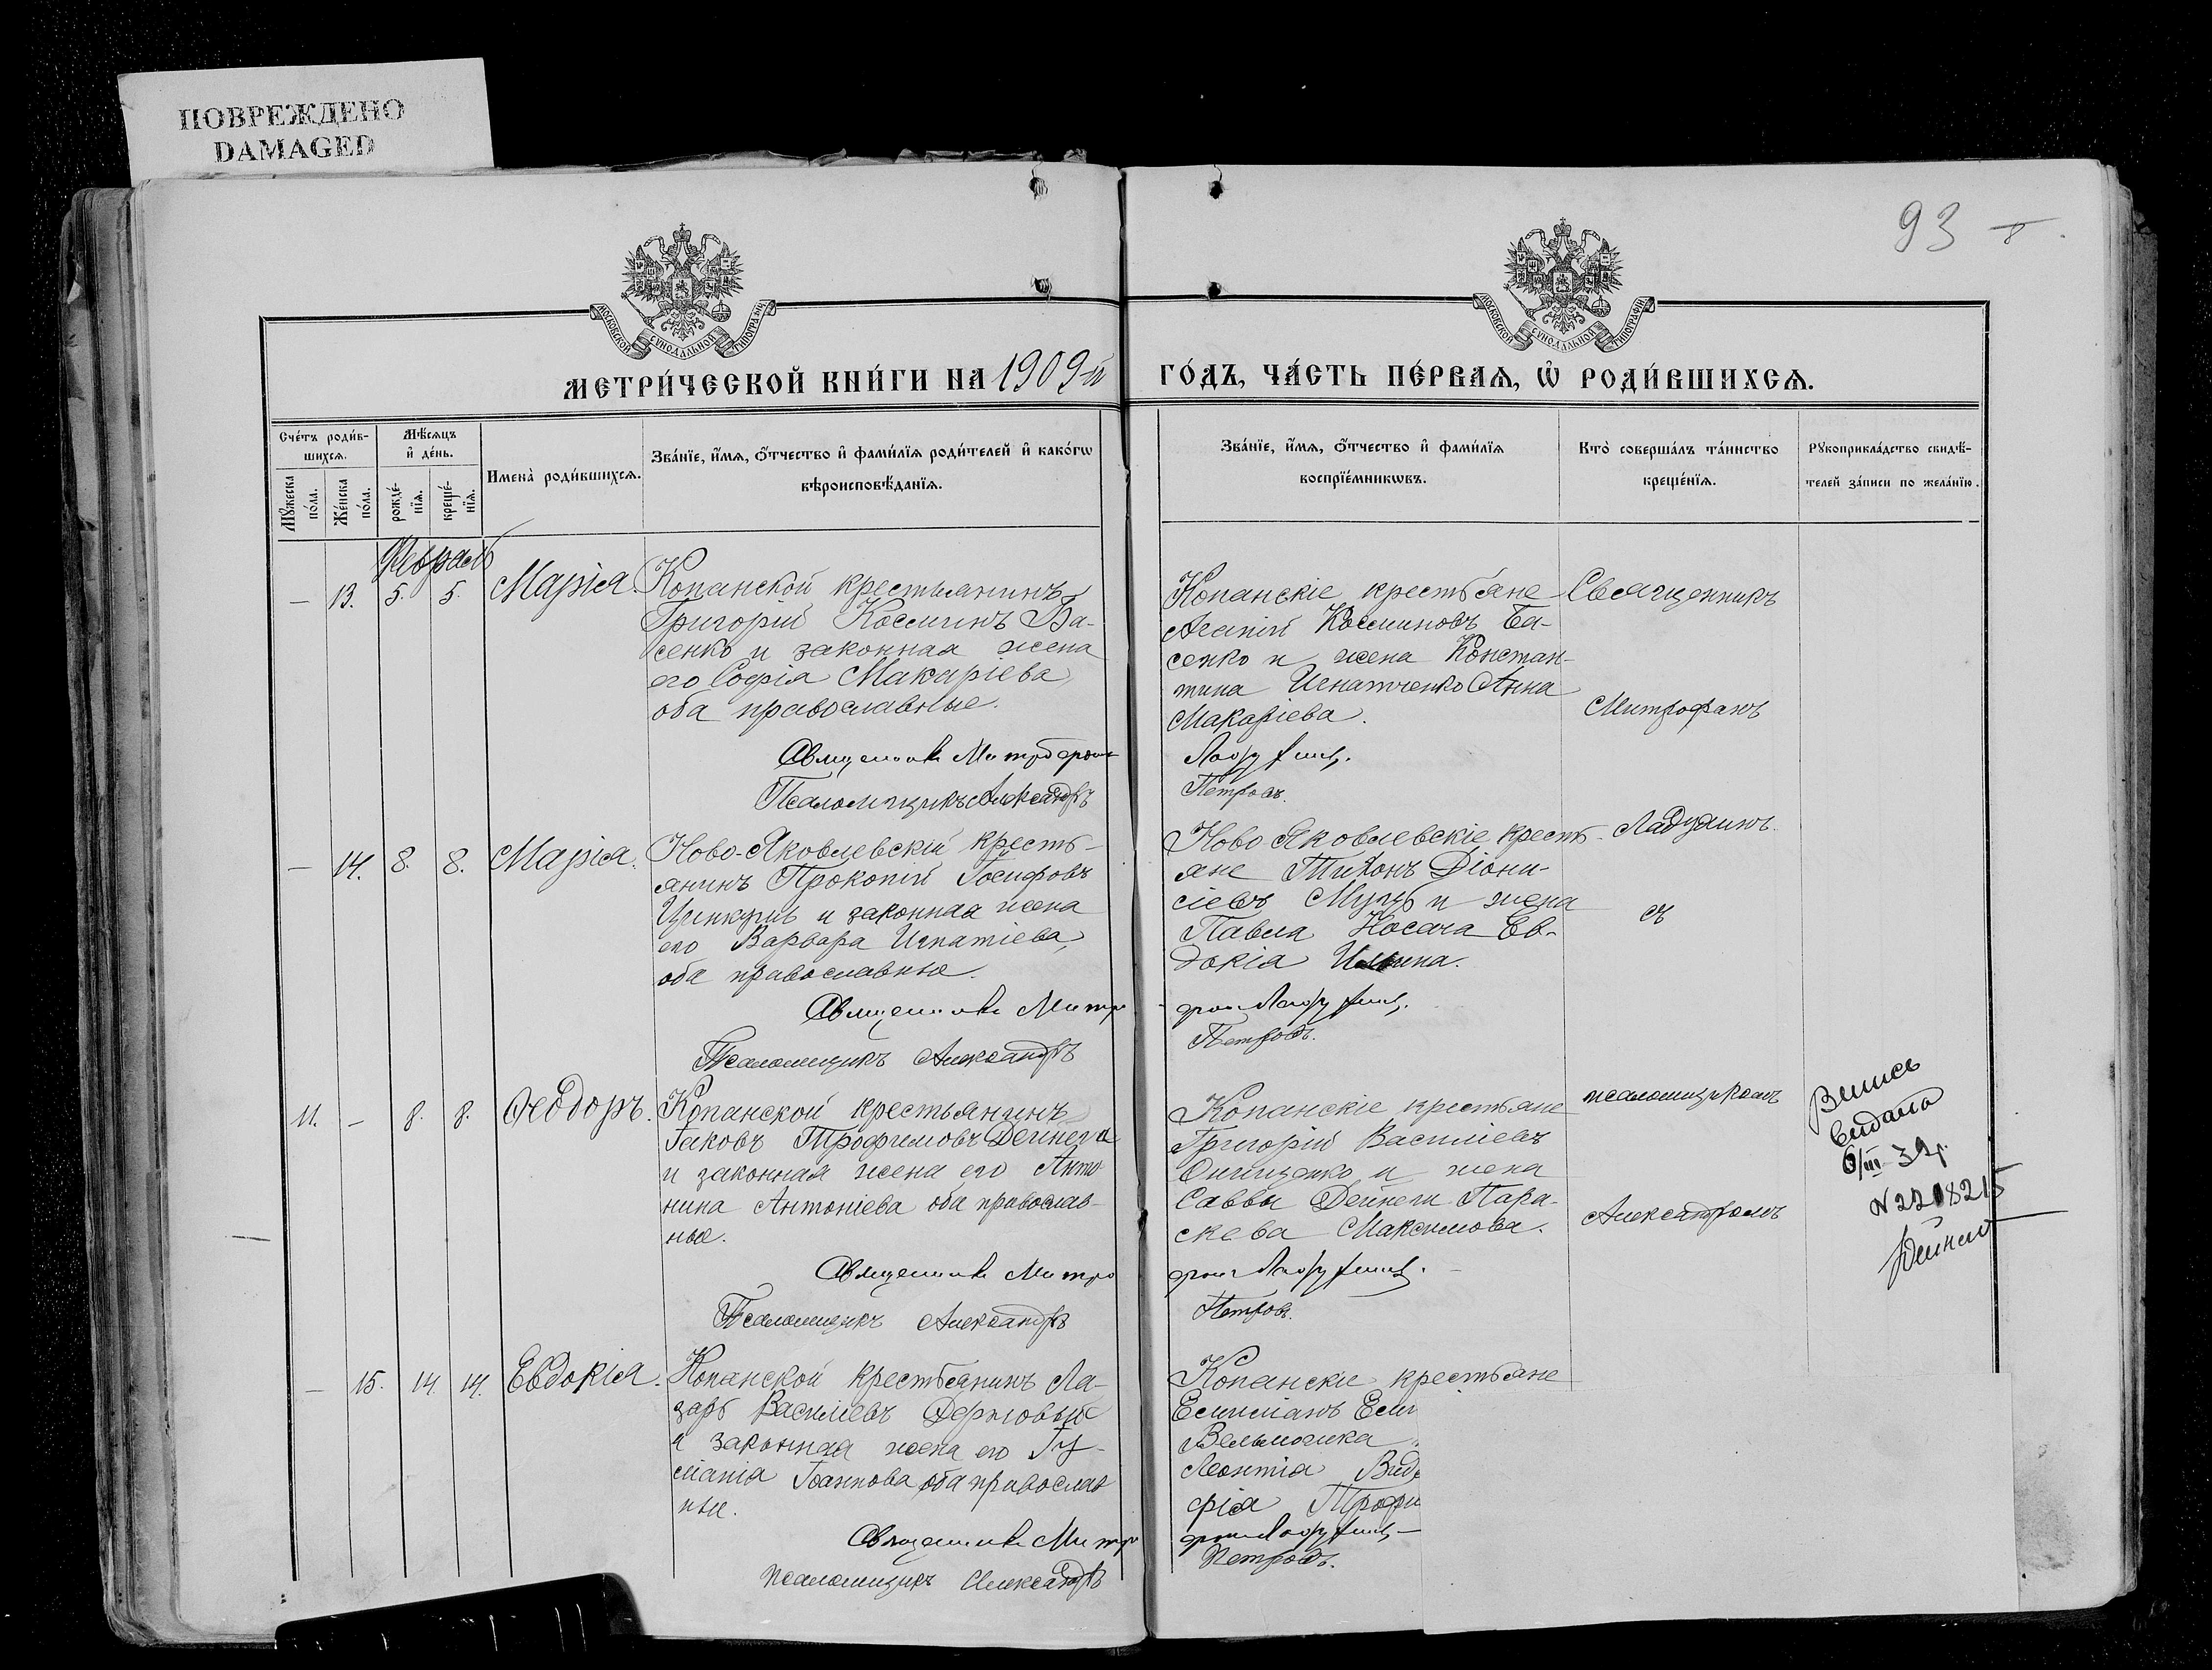 ПОВРЕЖДЕНО
DAMAGED
93
МОСКОВСКОЙ СѴНОДАЛЬНОЙ ТИПОГРАФІИ
МОСКОВСКОЙ СѴНОДАЛЬНОЙ ТИПОГРАФІИ
МЕТРИ́ЧЕСКОЙ КНИ́ГИ НА 1909-й
ГО́ДЪ, ЧА́СТЬ ПЕ́РВАѦ, Ѽ РОДИ́ВШИХСѦ.
Сче́тъ роди́в-
шихсѧ.
Мꙋ́жеска по́ла.
Же́нска по́ла.
Мѣ́сѧцъ
и҆ де́нь.
рожде́-
нїѧ.
креще́-
нїѧ.
Имена̀ роди́вшихсѧ.
Зва́нїе, и҆́мѧ, ѻ҆́тчество и҆ фами́лїѧ роди́телей и҆ како́гѡ
вѣроисповѣ́данїѧ.
Зва́нїе, и҆́мѧ, ѻ҆́тчество и҆ фами́лїѧ
воспрїе́мникѡвъ.
Кто̀ соверша́лъ та́инство
креще́нїѧ.
Рꙋкоприкла́дство свидѣ́-
телей за́писи по жела́нїю.
Февраль
— 13. 5. 5. Марія.
Копанской крестьянинъ
Григорій Косминъ Ба-
сенко и законная жена
его Софія Макаріева,
оба православные.
Священникъ Митрофанъ
Псаломщикъ Александръ
Копанскіе крестьяне
Агапій Косминовъ Ба-
сенко и жена Констан-
тина Игнатченко Анна
Макаріева.
Петровъ.
Священникъ
Митрофанъ
Ладухинъ
съ
псаломщикомъ
Александромъ
— 14. 8. 8. Марія.
Ново-Яковлевскій кресть-
янинъ Прокопій Іосифовъ
и законная жена
его Варвара Игнатіева,
оба православные.
Священникъ Митро
Псаломщикъ Александръ
Ново Яковлевскіе кресть-
яне Тихонъ Діони-
сіевъ и жена
Павла Носача Ев-
докія Ильина.
Петровъ.
11. — 8. 8. Ѳеодоръ.
Копанской крестьянинъ
Іаковъ Трофимовъ Дейнега
и законная жена его Анто
нина Антоніева оба православ-
ные.
Священникъ Митро
Псаломщикъ Александръ
Копанскіе крестьяне
Григорій Василіевъ
Онищенко и жена
Саввы Дейнеги Пара-
скева Максимова.
Петровъ.
Выпись
выдана
6/III-39г.
N 2208215
— 15. 14. 14. Евдокія.
Копанской крестьянинъ Ла-
зарь Василіевъ Держовый
и законная жена его Іу-
ліанія Іоаннова оба православ
ные.
Священникъ Митр
псаломщикъ Александръ
Копанскіе крестьяне
Вельможка
Леонтія
фія Трофи
Петровъ.